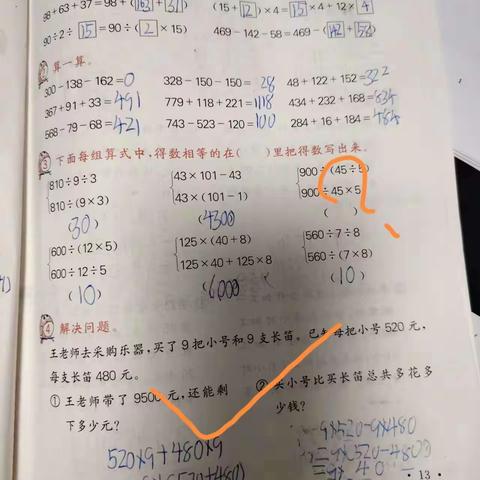 98+63+37=98+(163+31)
(15+12)×4=15×4+12×4
90÷2÷15=90÷(2×15)
469-142-58=469-(142+58)
② 算一算。
300-138-162=0
328-150-150=28
48+122+152=322
367+91+33=491
779+118+221=1118
434+232+168=834
568-79-68=421
743-523-120=100
284+16+184=484
③ 下面每组算式中,得数相等的在( )里把得数写出来。
810÷9÷3
43×101-43
900÷(45÷5)
810÷(9×3)
43×(101-1)
900÷45×5
(30)
(4300)
( )
600÷(12×5)
125×(40+8)
560÷7÷8
600÷12÷5
125×40+125×8
560÷(7×8)
(10)
(6000)
(10)
④ 解决问题。
王老师去采购乐器,买了9把小号和9支长笛。已知每把小号520元,
每支长笛480元。
① 王老师带了9500元,还能剩
下多少元?
② 买小号比买长笛总共多花多
少钱?
520×9+480×9
9×520-9×480
=9×(520-480)
=9×40
·13·